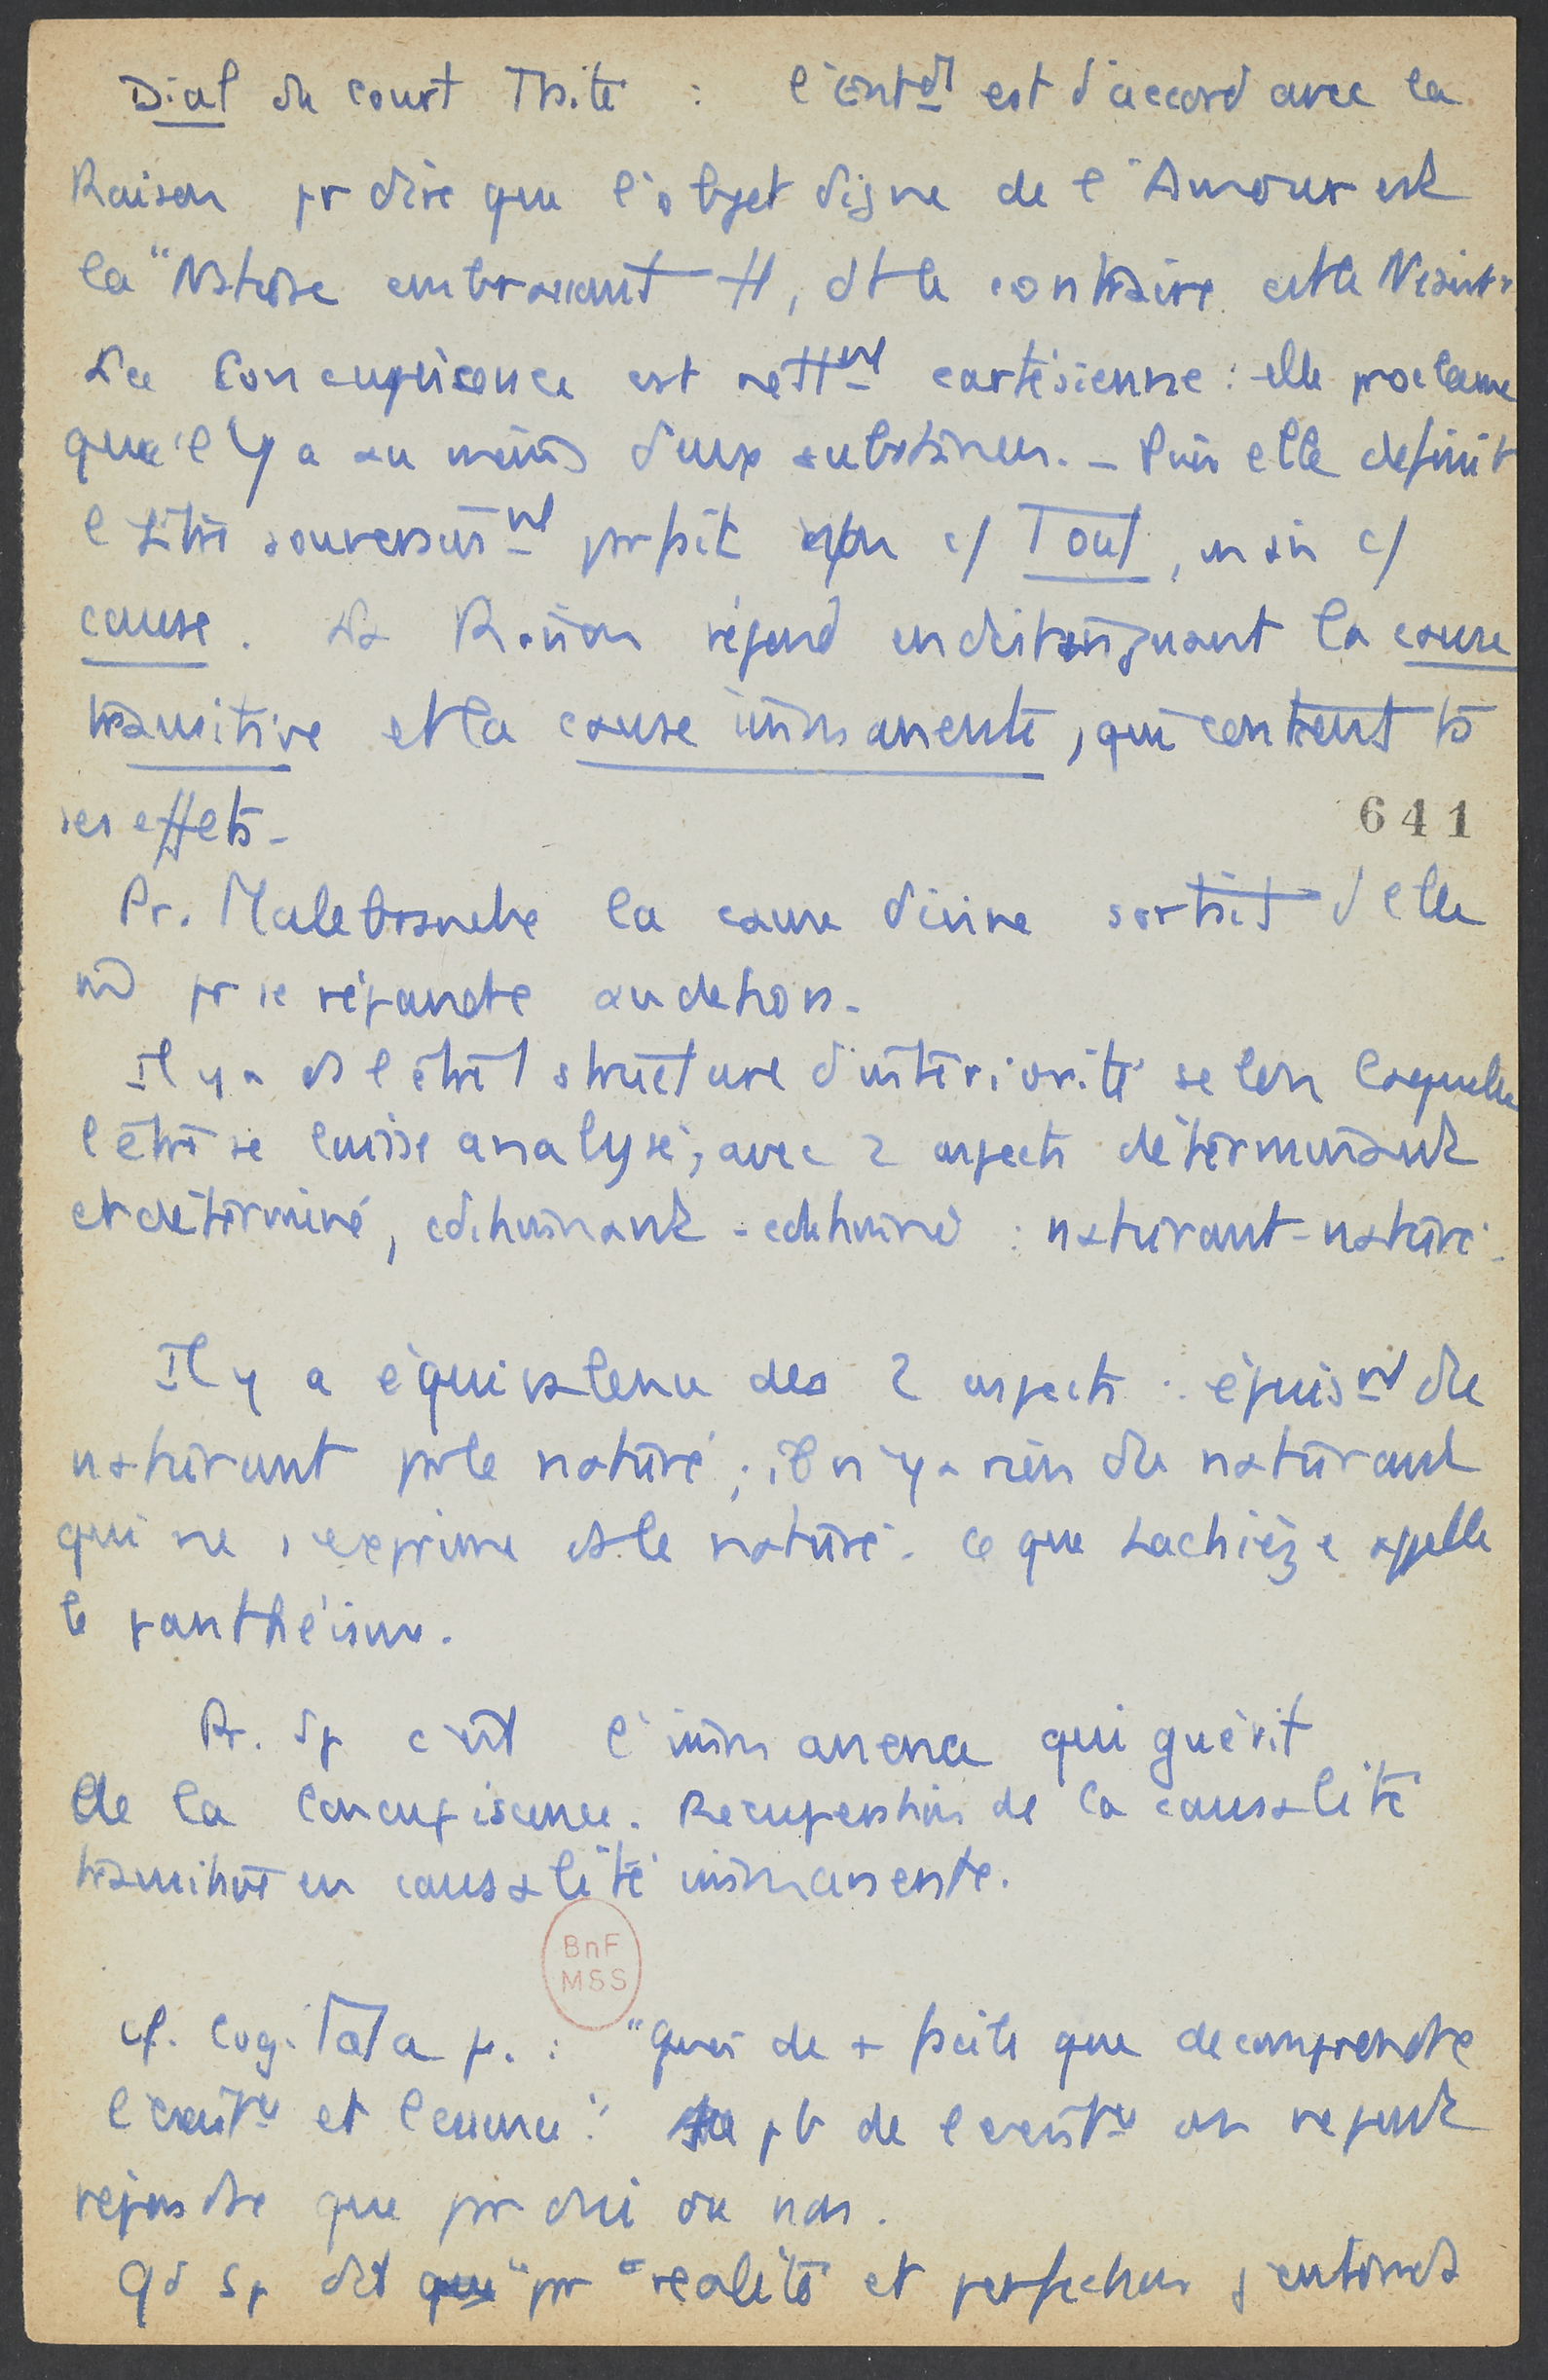 Dial du Court Traité : l'entdt est d'accord avec la
Raison pr dire que l'objet digne de l'Amour est
la "Nature embrassant tt, dt le contraire est le Néant"
La Concupiscence est nettmt cartésienne : elle proclame
qu'il y a au moins deux substances. - Puis elle définit
l'Etre souverainmt parfait non c/ Tout, mais c/
cause. La Raison répond en distinguant la cause
transitive et la cause immanente, qui contient ts
ses effets -
Pr. Malebranche la cause divine sortait d'elle
m̂ pr se répandre au dehors -
Il y a ds l'être 1 structure d'intériorité selon laquelle
l'être se laisse analyser, avec 2 aspects déterminant
et déterminé, naturant-naturé.
Il y a équivalence des 2 aspects : épuismt du
naturant par le naturé ; il n'y a rien du naturant
qui ne s'exprime ds le naturé. Ce que Lachièze appelle
le panthéisme.
Pr. Sp c'est l'immanence qui guérit
de la Concupiscence. Récupération de la causalité
transitive en causalité immanente.
cf. Cogitata p. : "Quoi de + facile que de comprendre
l'existce et l'essence". pb de l'existce on ne peut
répondre que par oui ou non.
Qd Sp dit que "par réalité et perfection j'entends
641
BnF
MSS